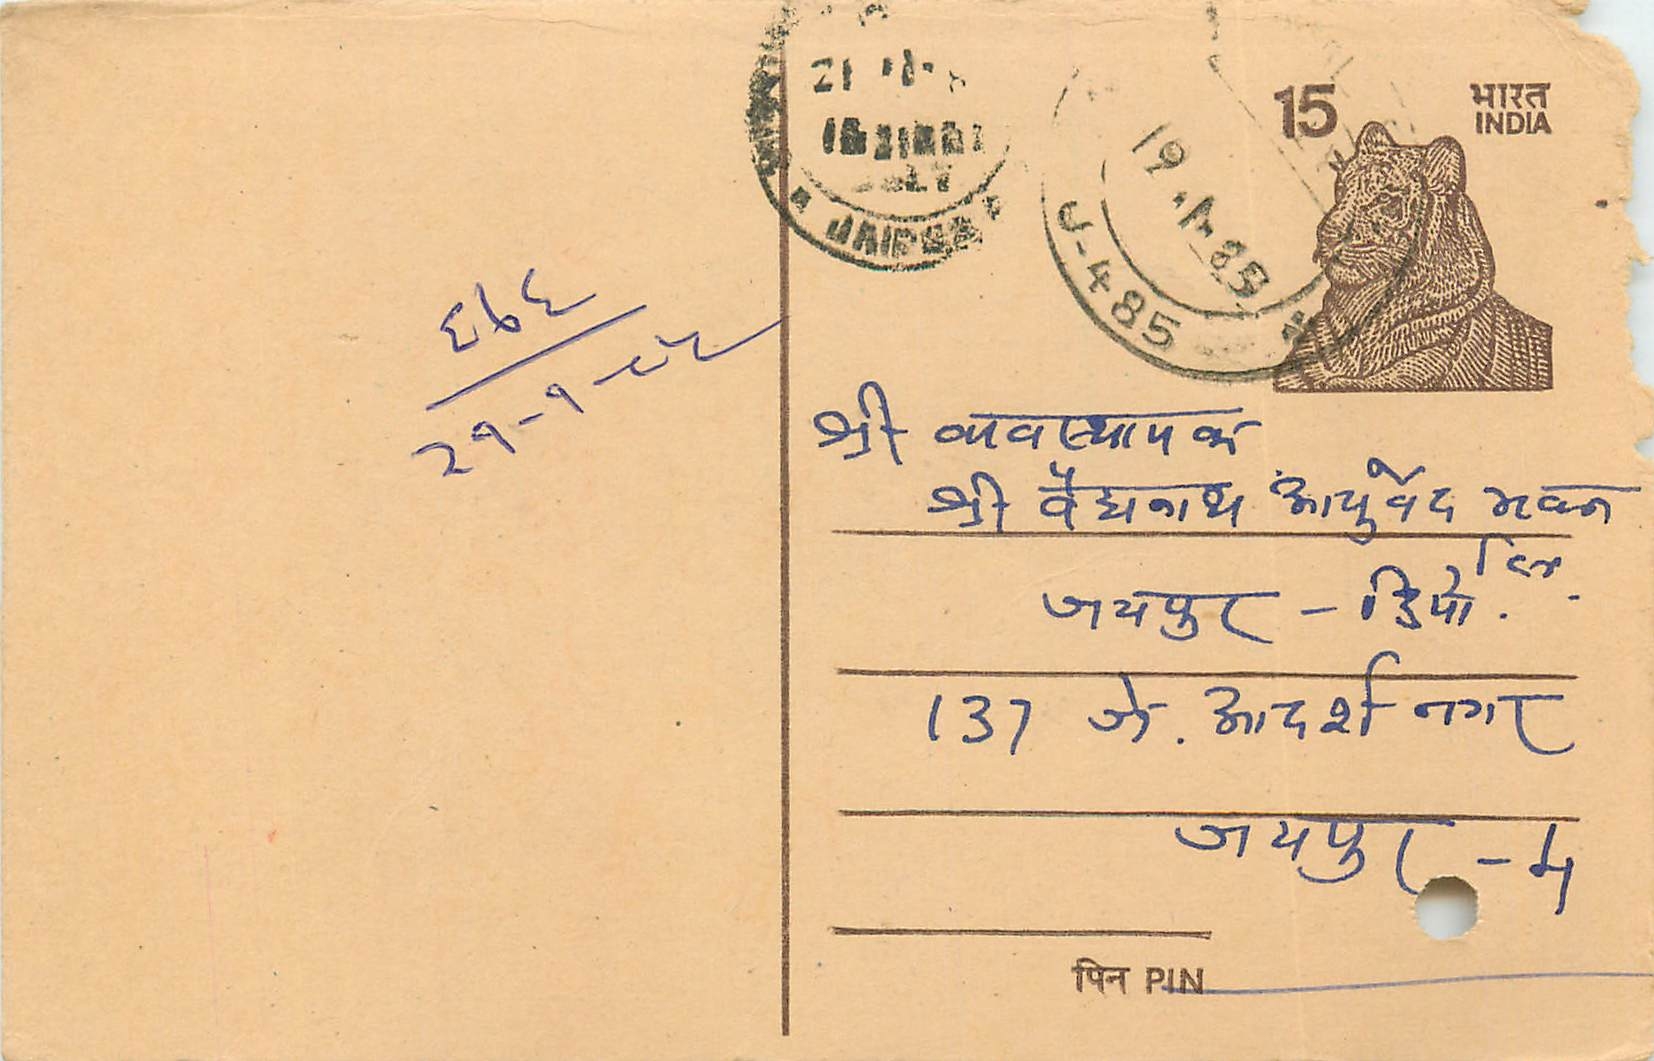 15
भारत
INDIA
21
JAIPUR
19.1.85
J-485
श्री व्यवस्थापक
श्री वैद्यनाथ आयुर्वेद भवन
लि.
जयपुर - डिपो.
137 जे. आदर्श नगर
जयपुर - 4
पिन PIN